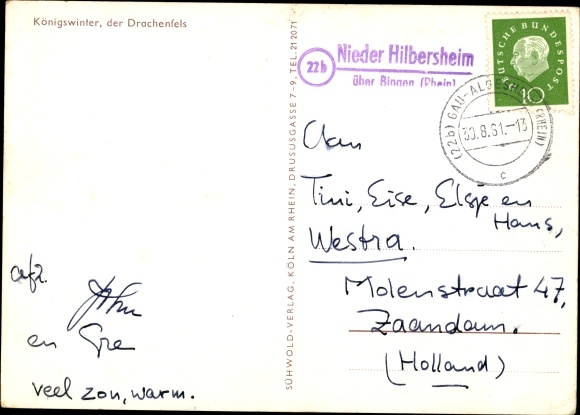 Königswinter, der Drachenfels
SÜHWOLD-VERLAG, KÖLN AM RHEIN, DRUSUSGASSE 7-9, TEL. 212071
22b
Nieder Hilbersheim
über Bingen (Rhein)
DEUTSCHE BUNDESPOST
10
(22b) GAU-ALGESHEIM (RHEIN)
30.8.61.-13
c
Aan
Tini, Eise, Elsje en
Hans,
Westra.
Molenstraat 47,
Zaandam.
(Holland)
afz.
John
en Gre
veel zon, warm.